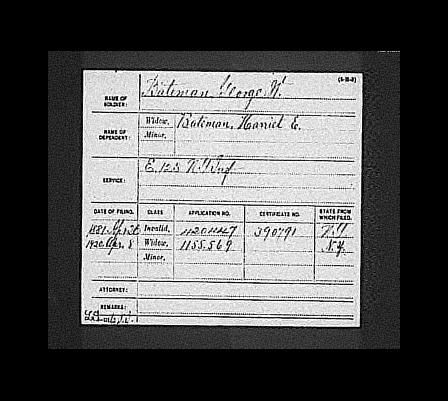 NAME OF SOLDIER: Bateman, George W.
NAME OF DEPENDENT: Widow, Bateman, Harriet E.
Minor,
SERVICE: E. 123 N.Y. Inf
DATE OF FILING. CLASS APPLICATION NO. CERTIFICATE NO. STATE FROM WHICH FILED.
1881 Invalid, 390791 N.Y.
1920 Apr. 8 Widow, 1155.569 N.Y.
Minor,
ATTORNEY:
REMARKS: